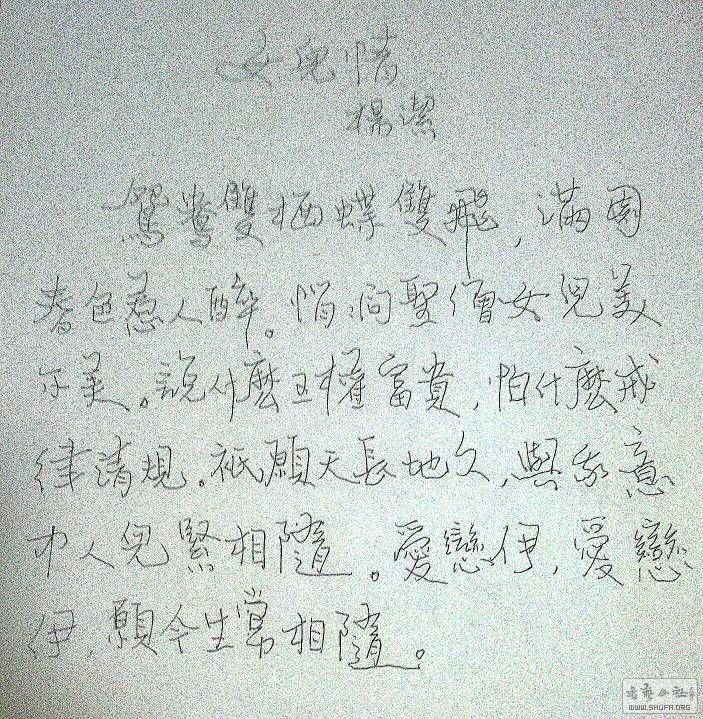 女兒情
楊潔
鴛鴦雙栖蝶雙飛，滿園
春色惹人醉。悄问聖僧女兒美
不美。說什麼王權富貴，怕什麼戒
律清規。祇願天長地久，與我意
中人兒緊相隨。愛戀伊，愛戀
伊 願今生常相隨。
WWW.SHUFA.ORG